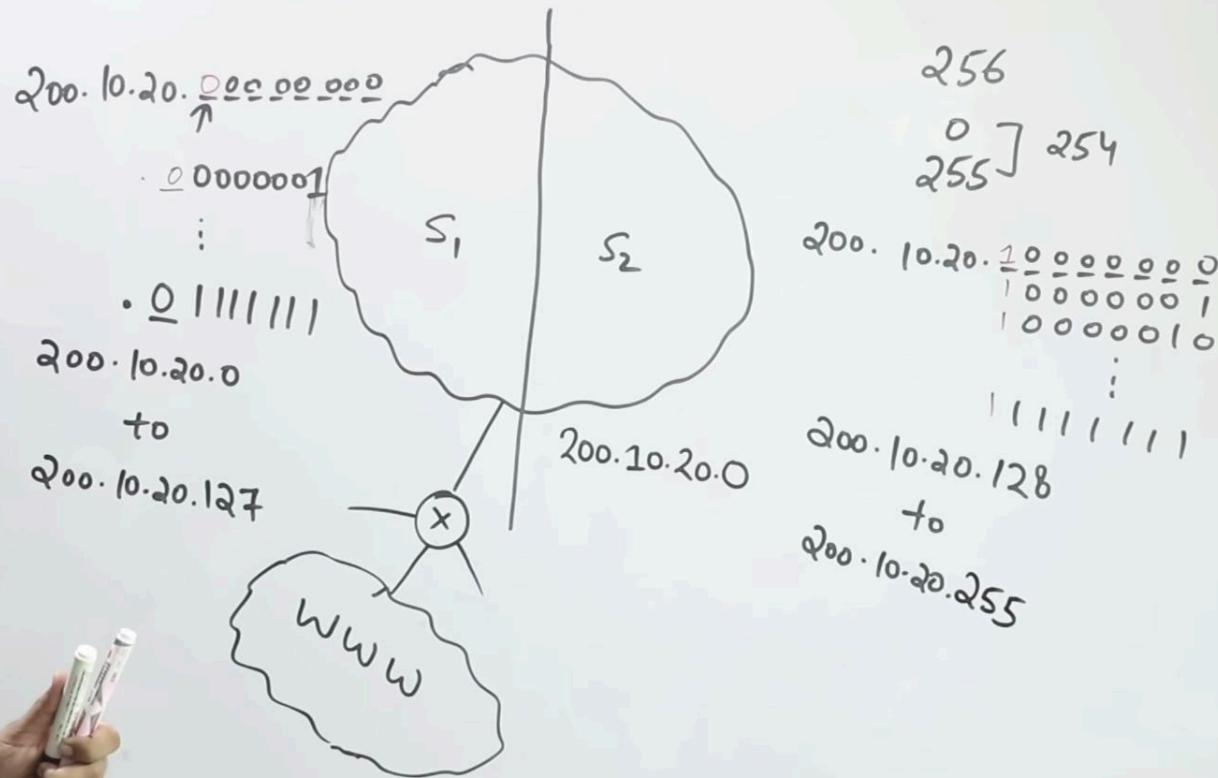 200.10.20.00000000
↑
.00000001
⋮
.01111111
200.10.20.0
to
200.10.20.127
S1
S2
200.10.20.0
X
WWW
256
0
255 ] 254
200.10.20.10000000
10000001
10000010
⋮
11111111
200.10.20.128
to
200.10.20.255